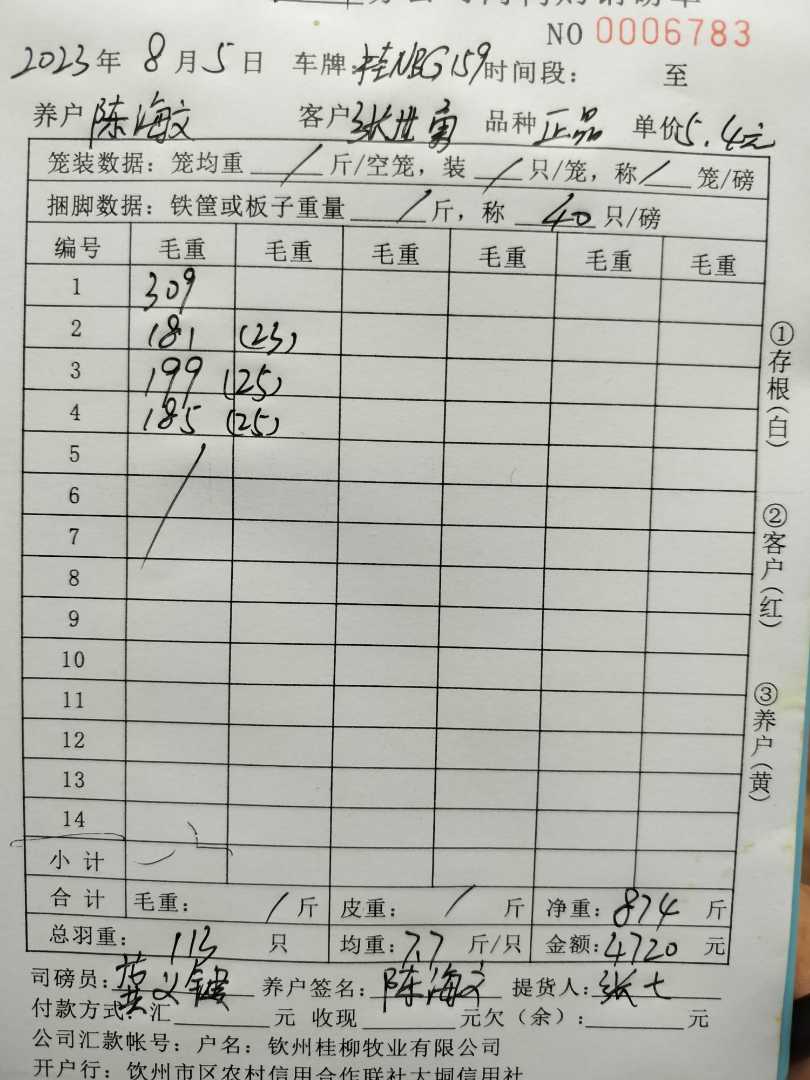 NO 0006783
2023年 8月5日 车牌:桂NBG159时间段: 至
养户 陈海文 客户 张世勇 品种 正品 单价5.4元
笼装数据: 笼均重 / 斤/空笼, 装 / 只/笼, 称 / 笼/磅
捆脚数据: 铁筐或板子重量 / 斤, 称 40 只/磅
编号 毛重 毛重 毛重 毛重 毛重 毛重
1 309
2 181 (23)
3 199 (25)
4 185 (25)
5
6
7
8
9
10
11
12
13
14
小计
合计 毛重: / 斤 皮重: / 斤 净重: 874 斤
总羽重: 113 只 均重: 7.7 斤/只 金额: 4720 元
司磅员: 养户签名: 陈海文 提货人: 张七
付款方式: 汇 元 收现 元欠(余): 元
公司汇款帐号: 户名: 钦州桂柳牧业有限公司
开户行: 钦州市区农村信用合作联社大垌信用社
①存根(白)
②客户(红)
③养户(黄)